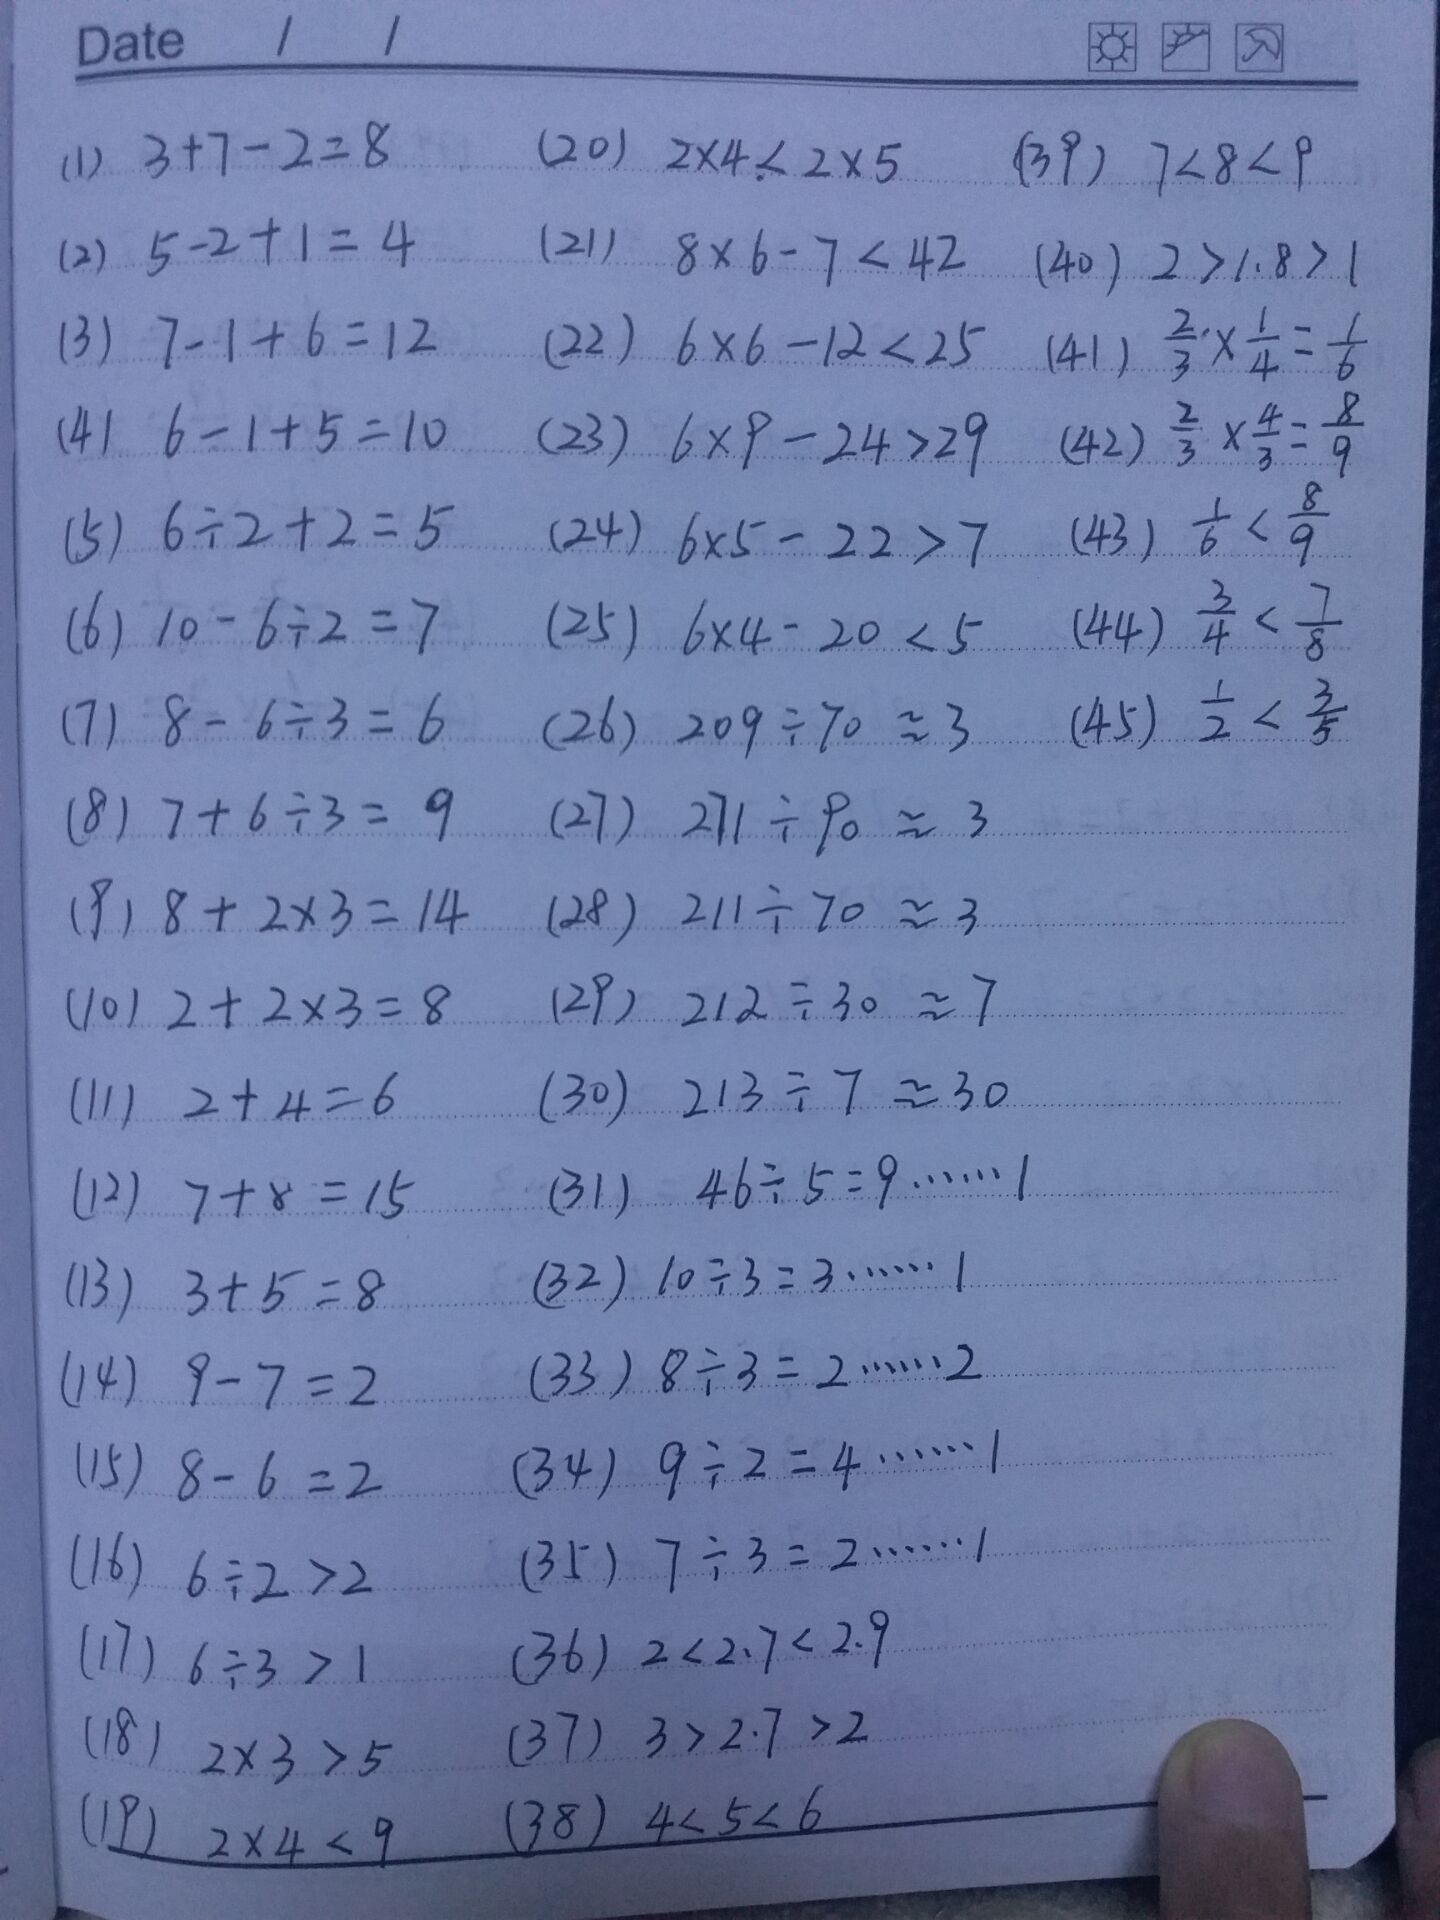 Date / /
(1) 3+7-2=8
(2) 5-2+1=4
(3) 7-1+6=12
(4) 6-1+5=10
(5) 6÷2+2=5
(6) 10-6÷2=7
(7) 8-6÷3=6
(8) 7+6÷3=9
(9) 8+2×3=14
(10) 2+2×3=8
(11) 2+4=6
(12) 7+8=15
(13) 3+5=8
(14) 9-7=2
(15) 8-6=2
(16) 6÷2>2
(17) 6÷3>1
(18) 2×3>5
(19) 2×4<9
(20) 2×4<2×5
(21) 8×6-7<42
(22) 6×6-12<25
(23) 6×9-24>29
(24) 6×5-22>7
(25) 6×4-20<5
(26) 209÷70≈3
(27) 271÷90≈3
(28) 211÷70≈3
(29) 212÷30≈7
(30) 213÷7≈30
(31) 46÷5=9……1
(32) 10÷3=3……1
(33) 8÷3=2……2
(34) 9÷2=4……1
(35) 7÷3=2……1
(36) 2<2.7<2.9
(37) 3>2.7>2
(38) 4<5<6
(39) 7<8<9
(40) 2>1.8>1
(41) 2/3×1/4=1/6
(42) 2/3×4/3=8/9
(43) 1/6<8/9
(44) 3/4<7/8
(45) 1/2<3/5